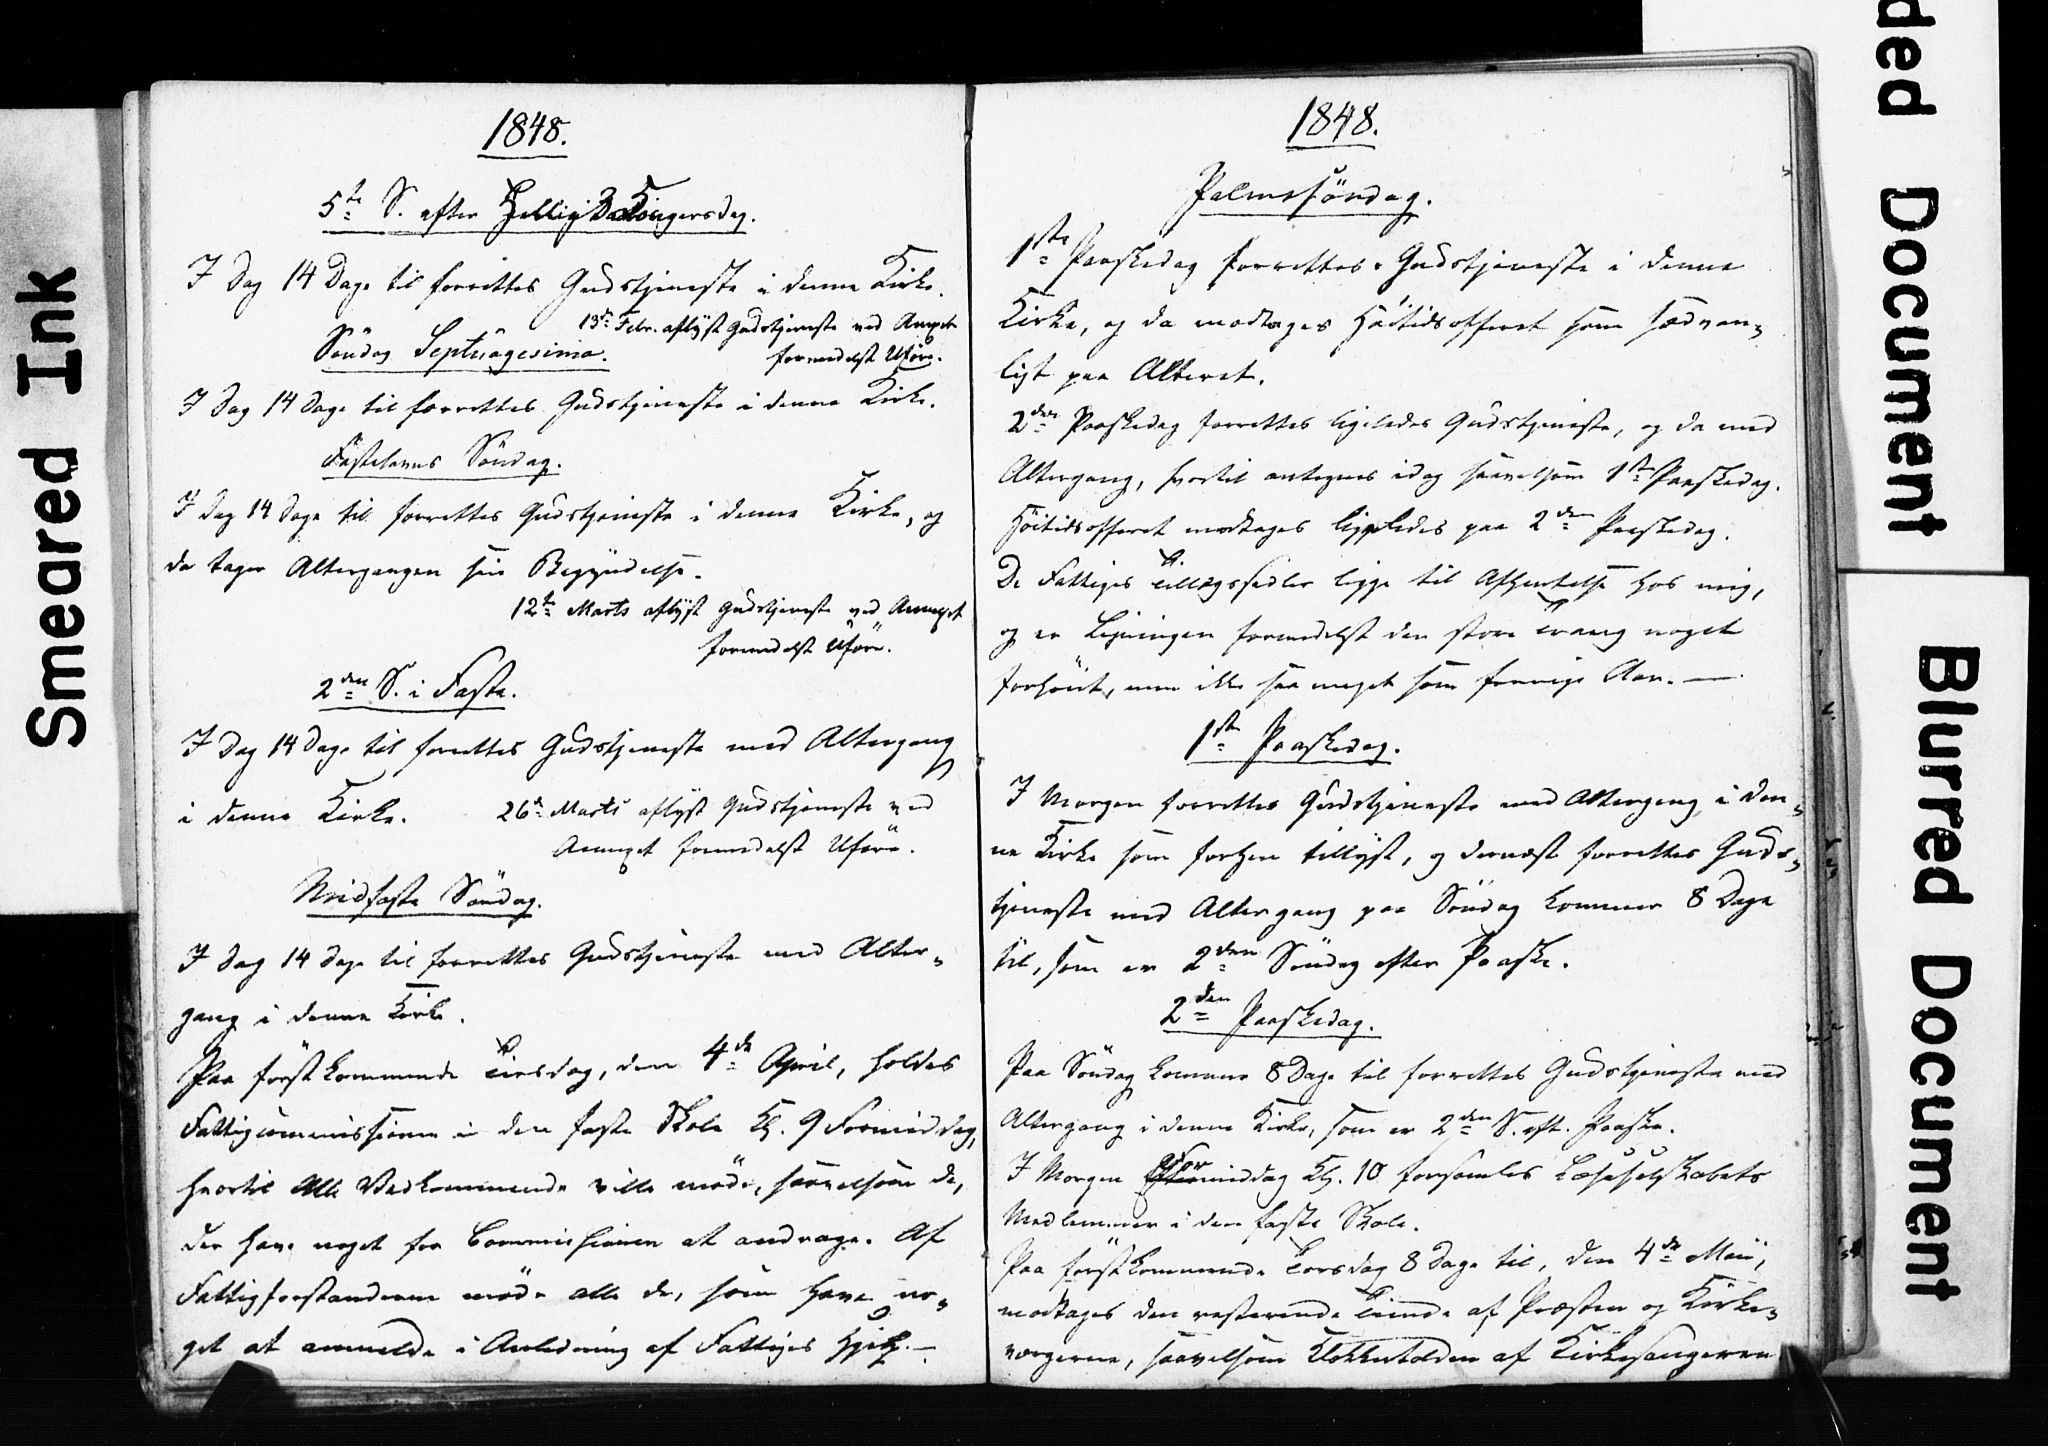 1848.
5te S. efter Hellig 3 Kongersdag.
I Dag 14 Dage til forrettes Gudstjeneste i denne Kirke.
13de Febr. aflyst Gudstjeneste ved Annæxet
Søndag Septuagesima.
formedelst Uføre.
I Dag 14 Dage til forrettes Gudstjeneste i denne Kirke.
Fastelavns Søndag.
I Dag 14 Dage til forrettes Gudstjeneste i denne Kirke, og
da tager Altergangen sin Begyndelse.
12te Marts aflyst Gudstjeneste ved Annexet
formedelst Uføre.
2den S. i Faste.
I Dag 14 Dage til forrettes Gudstjeneste med Altergang
i denne Kirke.
26de Marts aflyst Gudstjeneste ved
Annexet formedelst Uføre.
Midfaste Søndag.
I Dag 14 Dage til forrettes Gudstjeneste med Alter-
gang i denne Kirke.
Paa førstkommende Tirsdag, den 4de April, holdes
Fattigcommissionen i den faste Skole Kl. 9 Formiddag,
hvortil alle Vedkommende ville møde, saavelsom de,
der have noget for Commissionen at andrage. Af
Fattigforstanderne møde alle de, som have no-
get at anmelde i Anledning af Fattiges Hjelp.—
1848.
Palmesøndag.
1ste Paaskedag forrettes Gudstjeneste i denne
Kirke, og da modtages Høitidsofferet som sædvan-
ligt paa Alteret.
2den Paaskedag forrettes ligeledes Gudstjeneste, og da med
Altergang, hvortil antegnes idag saavelsom 1ste Paaskedag.
Høitidsofferet modtages ligeledes paa 2den Paaskedag.
De Fattiges Tillægssedler ligge til Afhentelse hos mig,
og er Ligningen formedelst den store Trang noget
forhöiet, men ikke saa meget som forrige Aar.—
1ste Paaskedag.
I Morgen forrettes Gudstjeneste med Altergang i den-
ne Kirke som forhen tillyst, og dernæst forrettes Guds-
tjeneste med Altergang paa Søndag kommer 8 Dage
til, som er 2den Søndag efter Paaske.
2den Paaskedag.
Paa Søndag kommer 8 Dage til forrettes Gudstjeneste med
Altergang i denne Kirke, som er 2den S. eft. Paaske.
I Morgen Formiddag Kl. 10 forsamles Læseselskabets
Medlemmer i den faste Skole.
Paa førstkommende Torsdag 8 Dage til, den 4de Maii,
modtages den resterende Tiende af Præsten og Kirke-
værgerne, saavelsom Klokketolden af Kirkesangeren
Smeared Ink
ded Document
Blurred Document